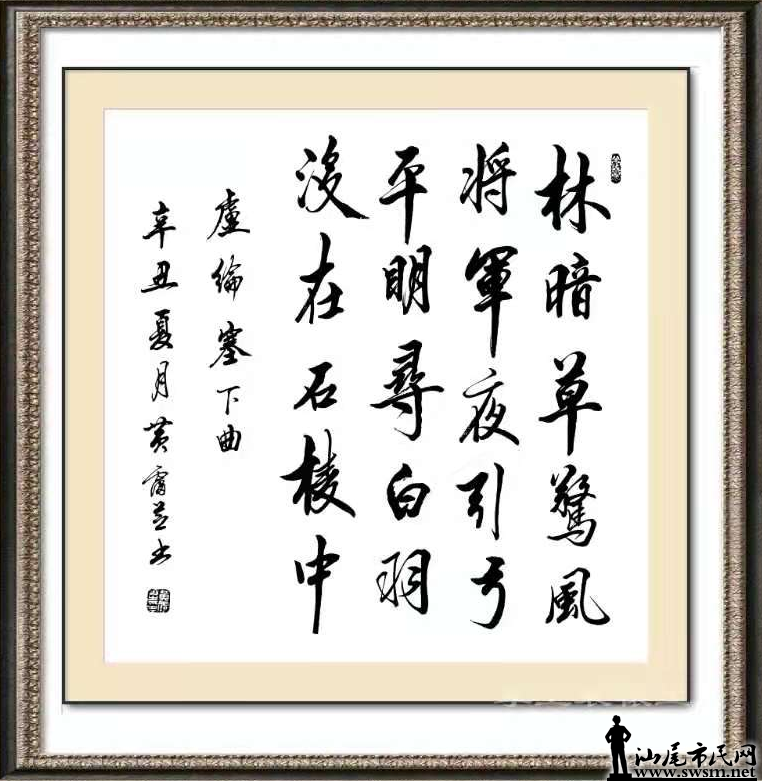 林暗草驚風
将軍夜引弓
平明尋白羽
没在石棱中
盧綸塞下曲
辛丑夏月黄
汕尾市民网
www.swsm.net